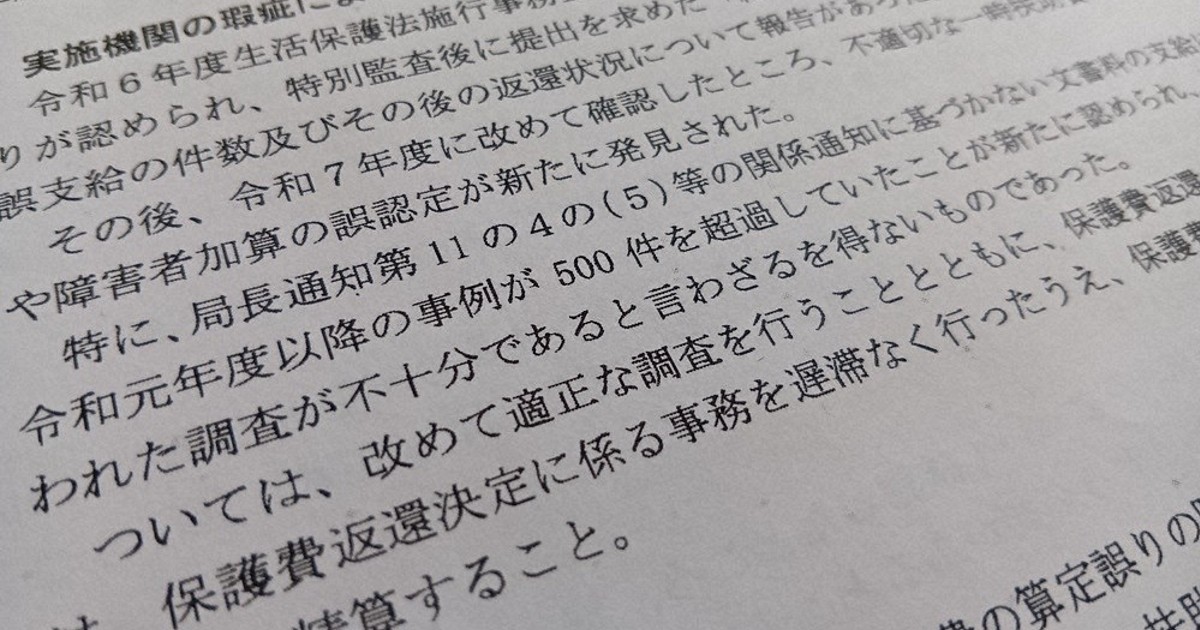 実施機関の瑕疵によ
令和6年度生活保護法施行事務
りが認められ、特別監査後に提出を求めた
誤支給の件数及びその後の返還状況について報告があっ
その後、令和7年度に改めて確認したところ、不適切な一時扶助
や障害者加算の誤認定が新たに発見された。
特に、局長通知第11の4の(5)等の関係通知に基づかない文書料の支給
令和元年度以降の事例が500件を超過していたことが新たに認められ、
われた調査が不十分であると言わざるを得ないものであった。
ついては、改めて適正な調査を行うこととともに、保護費返還
保護費返還決定に係る事務を遅滞なく行ったうえ、保護
精算すること。
費の算定誤りの